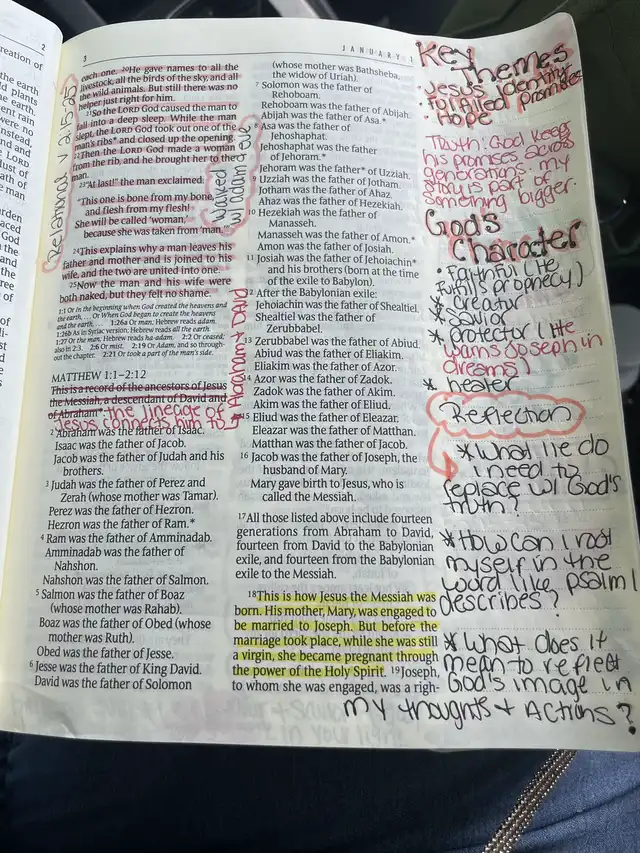 2
reation of
the earth
ld plants
e earth.
ent rain
were no
nstead,
nd and
e LORD
dust of
ath of
e man
3
JANUARY 1
each one. 20He gave names to all the
livestock, all the birds of the sky, and all
the wild animals. But still there was no
helper just right for him.
21So the LORD God caused the man to
fall into a deep sleep. While the man
slept, the LORD God took out one of the
man's ribs* and closed up the opening.
22Then the LORD God made a woman
from the rib, and he brought her to the
man.
23"At last!" the man exclaimed.
"This one is bone from my bone,
and flesh from my flesh!
She will be called 'woman,'
because she was taken from 'man.'"
24This explains why a man leaves his
father and mother and is joined to his
wife, and the two are united into one.
25Now the man and his wife were
both naked, but they felt no shame.
Relational v 2:15-25
w/ adam & eve
1:1 Or In the beginning when God created the heavens and
the earth, . . . Or When God began to create the heavens
and the earth, . . . 1:26a Or man; Hebrew reads adam.
1:26b As in Syriac version; Hebrew reads all the earth.
1:27 Or the man; Hebrew reads ha-adam. 2:2 Or ceased;
also in 2:3. 2:6 Or mist. 2:19 Or Adam, and so through-
out the chapter. 2:21 Or took a part of the man's side.
MATTHEW 1:1–2:12
This is a record of the ancestors of Jesus
the Messiah, a descendant of David and
of Abraham*:
the lineage of
Jesus connects him to
Abraham + DAVID
2 Abraham was the father of Isaac.
Isaac was the father of Jacob.
Jacob was the father of Judah and his
brothers.
3 Judah was the father of Perez and
Zerah (whose mother was Tamar).
Perez was the father of Hezron.
Hezron was the father of Ram.*
4 Ram was the father of Amminadab.
Amminadab was the father of
Nahshon.
Nahshon was the father of Salmon.
5 Salmon was the father of Boaz
(whose mother was Rahab).
Boaz was the father of Obed (whose
mother was Ruth).
Obed was the father of Jesse.
6 Jesse was the father of King David.
David was the father of Solomon
(whose mother was Bathsheba,
the widow of Uriah).
7 Solomon was the father of
Rehoboam.
Rehoboam was the father of Abijah.
Abijah was the father of Asa.*
8 Asa was the father of
Jehoshaphat.
Jehoshaphat was the father
of Jehoram.*
Jehoram was the father* of Uzziah.
9 Uzziah was the father of Jotham.
Jotham was the father of Ahaz.
Ahaz was the father of Hezekiah.
10 Hezekiah was the father of
Manasseh.
Manasseh was the father of Amon.*
Amon was the father of Josiah.
11 Josiah was the father of Jehoiachin*
and his brothers (born at the time
of the exile to Babylon).
12 After the Babylonian exile:
Jehoiachin was the father of Shealtiel.
Shealtiel was the father of
Zerubbabel.
13 Zerubbabel was the father of Abiud.
Abiud was the father of Eliakim.
Eliakim was the father of Azor.
14 Azor was the father of Zadok.
Zadok was the father of Akim.
Akim was the father of Eliud.
15 Eliud was the father of Eleazar.
Eleazar was the father of Matthan.
Matthan was the father of Jacob.
16 Jacob was the father of Joseph, the
husband of Mary.
Mary gave birth to Jesus, who is
called the Messiah.
17All those listed above include fourteen
generations from Abraham to David,
fourteen from David to the Babylonian
exile, and fourteen from the Babylonian
exile to the Messiah.
18This is how Jesus the Messiah was
born. His mother, Mary, was engaged to
be married to Joseph. But before the
marriage took place, while she was still
a virgin, she became pregnant through
the power of the Holy Spirit. 19Joseph,
to whom she was engaged, was a righ-
Key
Themes
• Jesus' Identity
• Fulfilled promises
• Hope
Truth: God keeps
his promises across
generations. my
story is part of
something bigger.
God's
Character
• Faithful (He
fulfills prophecy)
* creator
* Savior
* protector (He
warns Joseph in
dreams)
* healer
Reflection
* What lie do
i need to
replace w/ God's
truth?
* How can I root
myself in the
word like psalm 1
describes?
* What does it
mean to reflect
God's image in
my thoughts + Actions?